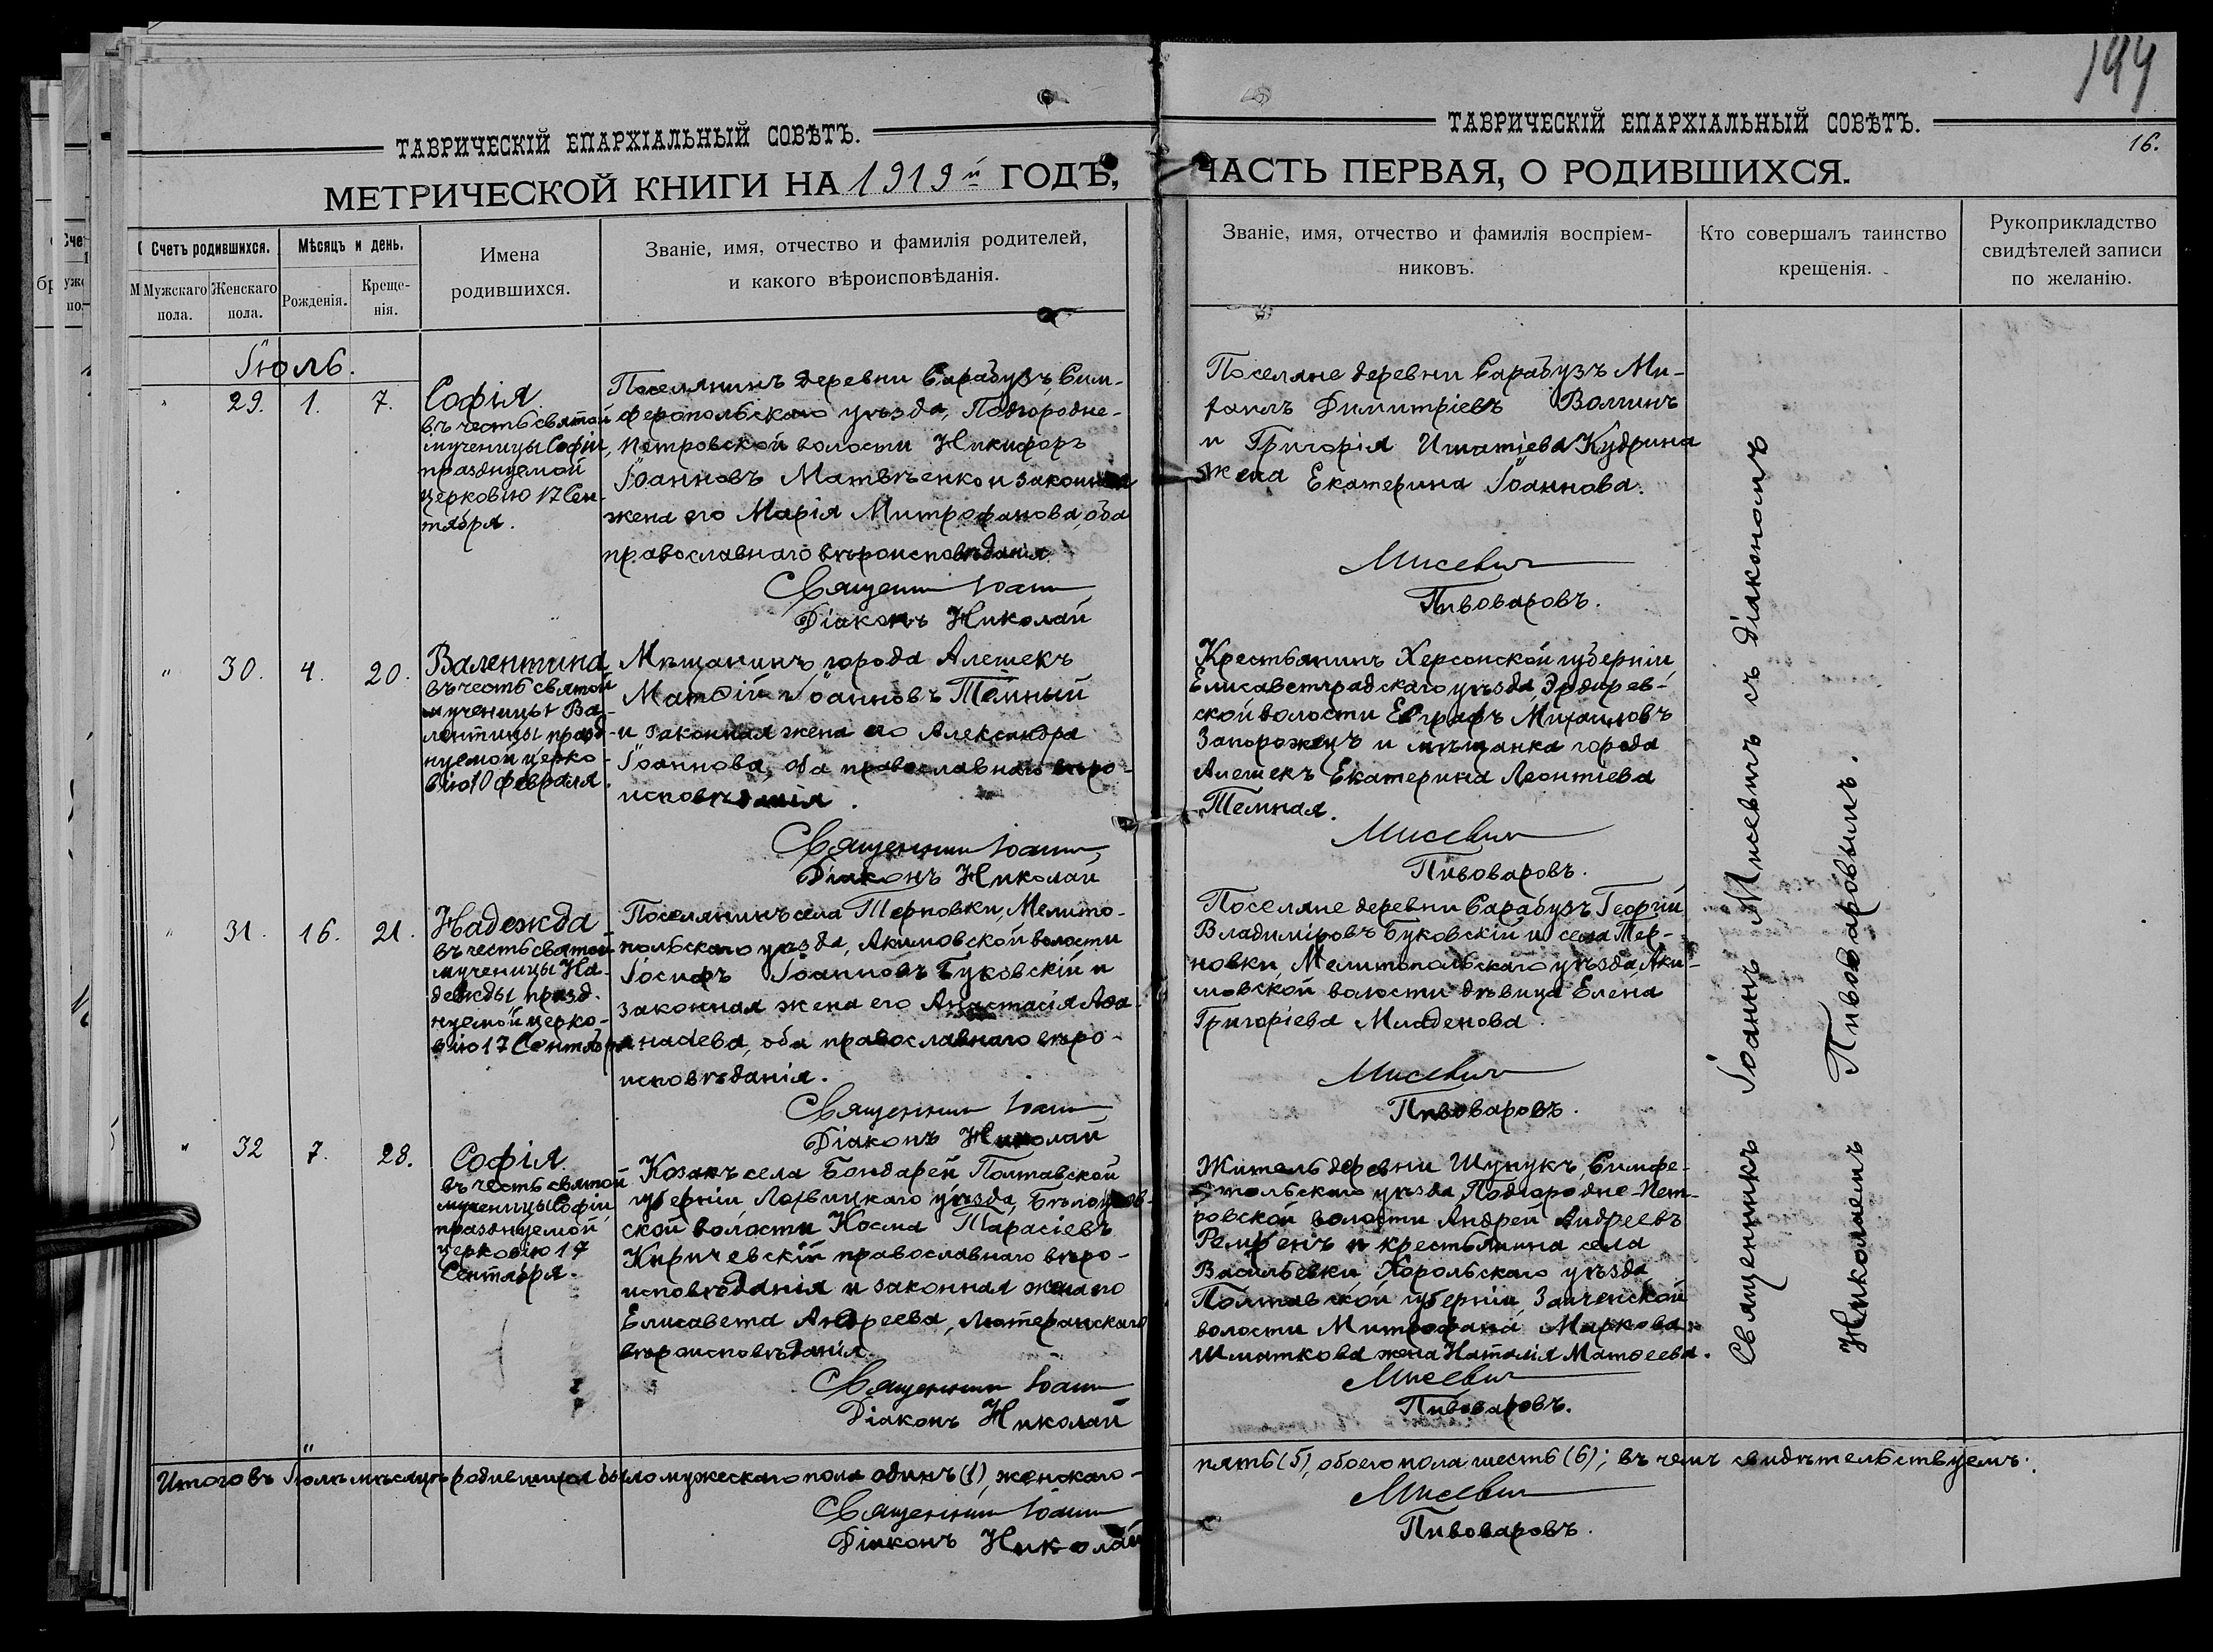 194
16.
ТАВРИЧЕСКІЙ ЕПАРХІАЛЬНЫЙ СОВѢТЪ.
МЕТРИЧЕСКОЙ КНИГИ НА 1919й ГОДЪ,
Счетъ родившихся.
Мѣсяцъ и день.
Имена
родившихся.
Званіе, имя, отчество и фамилія родителей,
и какого вѣроисповѣданія.
Мужскаго
пола.
Женскаго
пола.
Рожденія.
Креще-
нія.
Іюль.
" 29. 1. 7.
Софія
въ честь святой
мученицы Софіи,
празднуемой
церковію 17 Сен-
тября.
Поселянинъ деревни Сарабузъ, Сим-
феропольскаго уѣзда, Подгородне-
Петровской волости Никифоръ
Іоанновъ Матвѣенко и законная
жена его Марія Митрофанова оба
православнаго вѣроисповѣданія.
Священникъ Іоаннъ
Діаконъ Николай
" 30. 4. 20.
Валентина
въ честь святой
мученицы Ва-
лентины празд-
нуемой церко-
вію 10 февраля.
Мѣщанинъ города Алешекъ
Матѳій Іоанновъ Темный
и законная жена его Александра
Іоаннова, оба православнаго вѣро-
исповѣданія.
Священникъ Іоаннъ
Діаконъ Николай
" 31. 16. 21.
Надежда
въ честь святой
мученицы На-
дежды празд-
нуемой церко-
вію 17 Сентября
Поселянинъ села Терновки, Мелито-
польскаго уѣзда, Акимовской волости
Іосифъ Іоанновъ Буковскій и
законная жена его Анастасія Аѳа-
насіева, оба православнаго вѣро-
исповѣданія.
Священникъ Іоаннъ
Діаконъ Николай
" 32 7. 28.
Софія
въ честь святой
мученицы Софіи,
празднуемой
церковію 17
Сентября.
Козакъ села Бондарей Полтавской
губерніи Лохвицкаго уѣзда,
ской волости Косма Тарасіевъ
Киричевскій православнаго вѣро-
исповѣданія и законная жена его
Елисавета Андреева, лютеранскаго
вѣроисповѣданія.
Священникъ Іоаннъ
Діаконъ Николай
Итого въ Іюлѣ мѣсяцѣ родившихся было мужескаго пола одинъ (1), женскаго-
Священникъ Іоаннъ
Діаконъ Николай
ТАВРИЧЕСКІЙ ЕПАРХІАЛЬНЫЙ СОВѢТЪ.
ЧАСТЬ ПЕРВАЯ, О РОДИВШИХСЯ.
Званіе, имя, отчество и фамилія воспріем-
никовъ.
Кто совершалъ таинство
крещенія.
Рукоприкладство
свидѣтелей записи
по желанію.
Поселяне деревни Сарабузъ Ми-
хаилъ Димитріевъ Волгинъ
и Григорія Игнатіева Кудрина
жена Екатерина Іоаннова.
Мисевичъ
Пивоваровъ.
Крестьянинъ Херсонской губерніи
Елисаветградскаго уѣзда,
ской волости Евграфъ Михаиловъ
Запорожецъ и мѣщанка города
Алешекъ Екатерина Леонтіева
Темная.
Мисевичъ
Пивоваровъ.
Поселяне деревни Сарабузъ Георгій
Владиміровъ Буковскій и села Тер-
новки, Мелитопольскаго уѣзда, Аки-
мовской волости дѣвица Елена
Григоріева Младенова.
Мисевичъ
Пивоваровъ.
Житель деревни Шунукъ, Симфе-
ропольскаго уѣзда, Подгородне-Пет-
ровской волости Андрей Андреевъ
и крестьянина села
Васильевки, Хорольскаго уѣзда
Полтавской губерніи, Заиченской
волости Митрофана Маркова
Шматкова жена Наталія Матѳеева.
Мисевичъ
Пивоваровъ.
Священникъ Іоаннъ Мисевичъ съ діакономъ
Николаемъ Пивоваровымъ.
пять (5), обоего пола шесть (6); въ чемъ свидѣтельствуемъ:
Мисевичъ
Пивоваровъ.